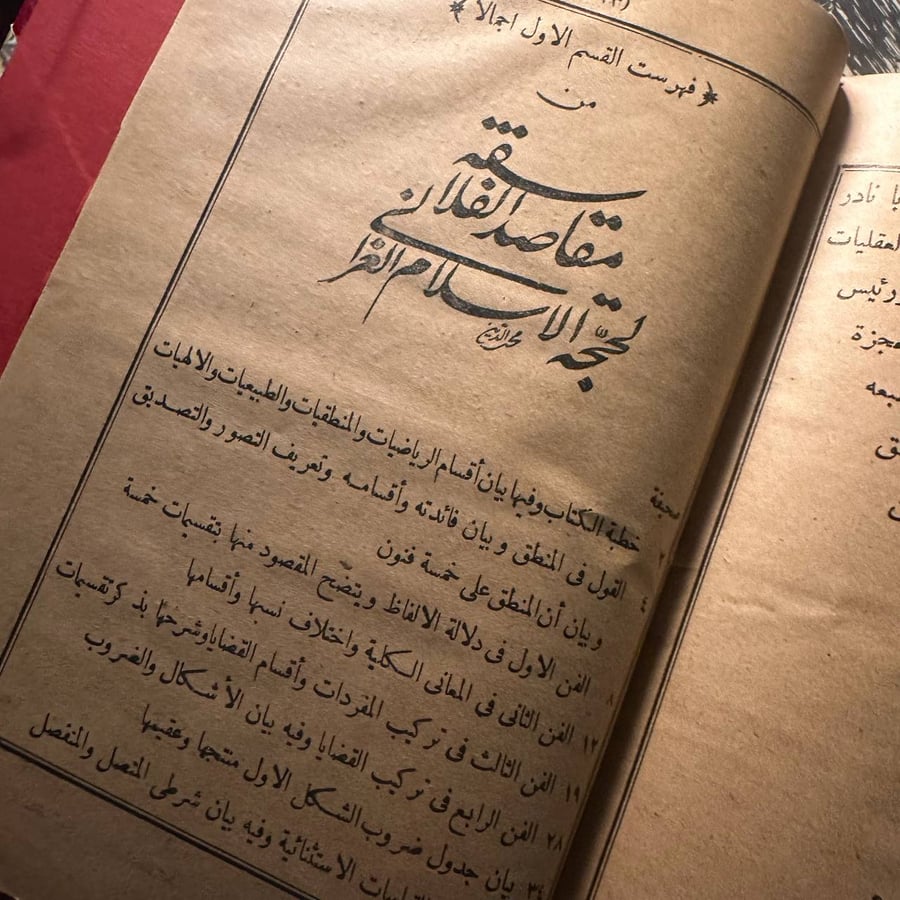 ﴿ فهرست القسم الاول اجمالا ﴾
من
مقاصد الفلاسفه
لحجّة الاسلام الغزالى
صحيفة
٢ خطبة الكتاب وفيها بيان أقسام الرياضيات والمنطقيات والطبيعيات والالهيات
٤ القول فى المنطق وبيان فائدته وأقسامه وتعريف التصور والتصديق
وبيان أن المنطق على خمسة فنون
٨ الفن الاول فى دلالة الالفاظ ويتضح المقصود منها بتقسيمات خمسة
١٢ الفن الثانى فى المعانى الكلية واختلاف نسبها وأقسامها
١٩ الفن الثالث فى تركيب المفردات وأقسام القضايا وشرحها بذكر تقسيمات
٢٨ الفن الرابع فى تركيب القضايا وفيه بيان الأشكال والضروب
٣٤ بيان جدول ضروب الشكل الاول منتجها وعقيمها
الاستثنائية وفيه بيان شرطى المتصل والمنفصل
با نادر
العقليات
ورئيس